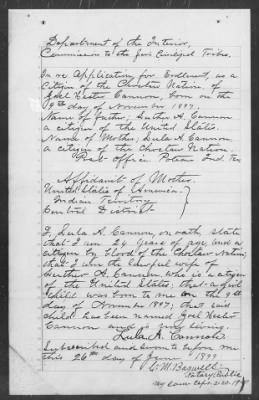 Department of the Interior,
Commission to the Five Civilized Tribes.
In re Application for Enrollment, as a
Citizen of the Choctaw Nation, of
Goel Hester Cannon, born on the
9th day of November 1897.
Name of Father, Luther A. Cannon
a citizen of the United States.
Name of Mother, Lula A. Cannon
a citizen of the Choctaw Nation.
Post Office Poteau Ind. Ter
Affidavit of Mother
United States of America.
Indian Territory
Central District
I, Lula A. Cannon, on oath state
that I am 24 years of age, and a
citizen by blood of the Choctaw Nation;
that I am the lawful wife of
Luther A. Cannon, who is a citizen
of the United States; that a girl
child was born to me on the 9th
day of November 1897; that said
child has been named Goel Hester
Cannon and is now living.
Lula A. Cannon
Subscribed and sworn to before me
this 26th day of June 1899
M. Bagwell
Notary Public
My com expt.